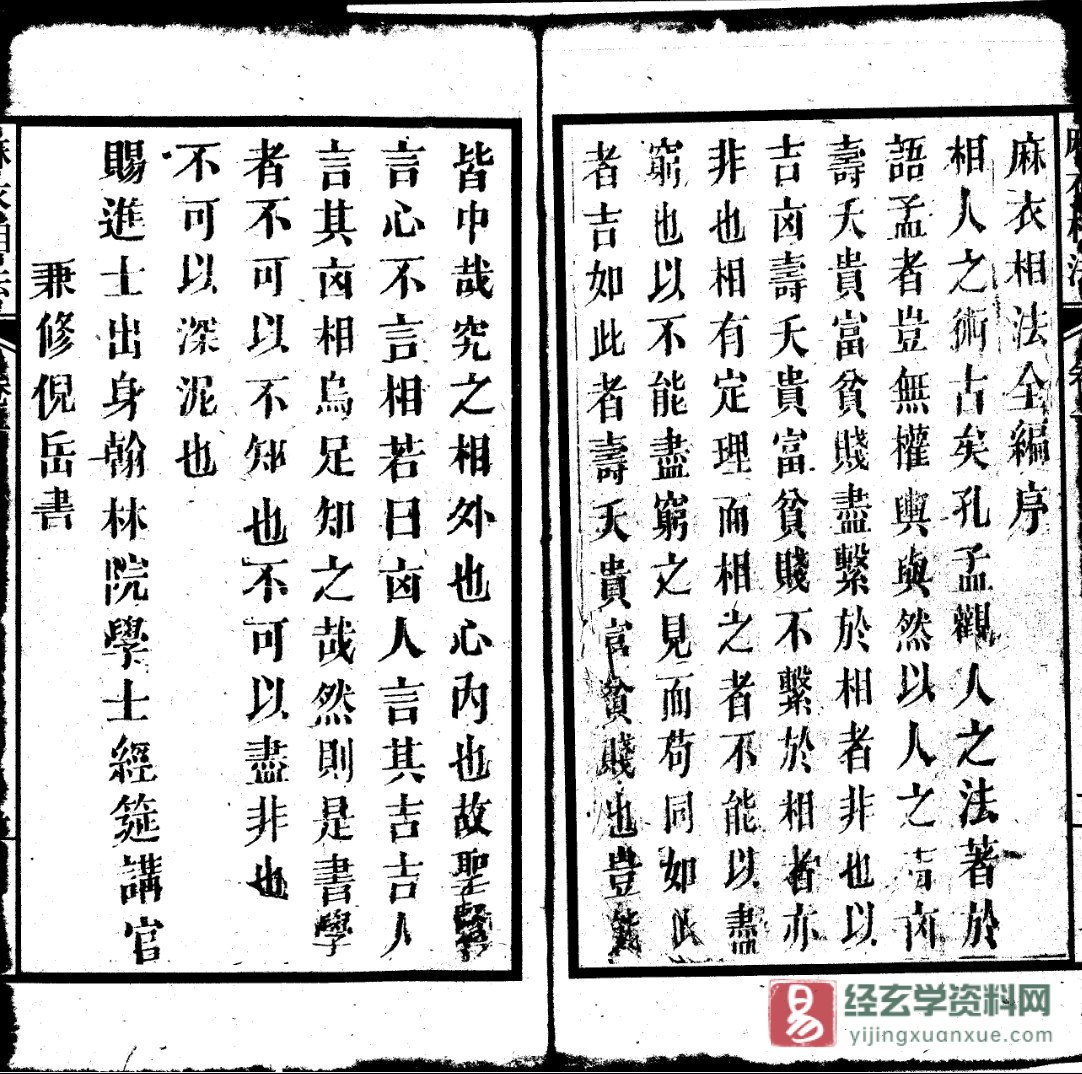 麻衣相法全編序
相人之術古矣孔孟觀人之法著於
語孟者豈無權輿與然以人之吉凶
壽夭貴富貧賤盡繫於相者非也以
吉凶壽夭貴富貧賤不繫於相者亦
非也相有定理而相之者不能以盡
窮也以不能盡窮之見而苟同如此
者吉如此者壽夭貴富貧賤也豈能
皆中哉究之相外也心內也故聖賢
言心不言相若曰凶人言其吉吉人
言其凶相烏足知之哉然則是書學
者不可以不知也不可以盡非也
不可以深泥也
賜進士出身翰林院學士經筵講官
兼修倪岳書
麻衣相法
易
经玄学资料网
yijingxuanxue.com